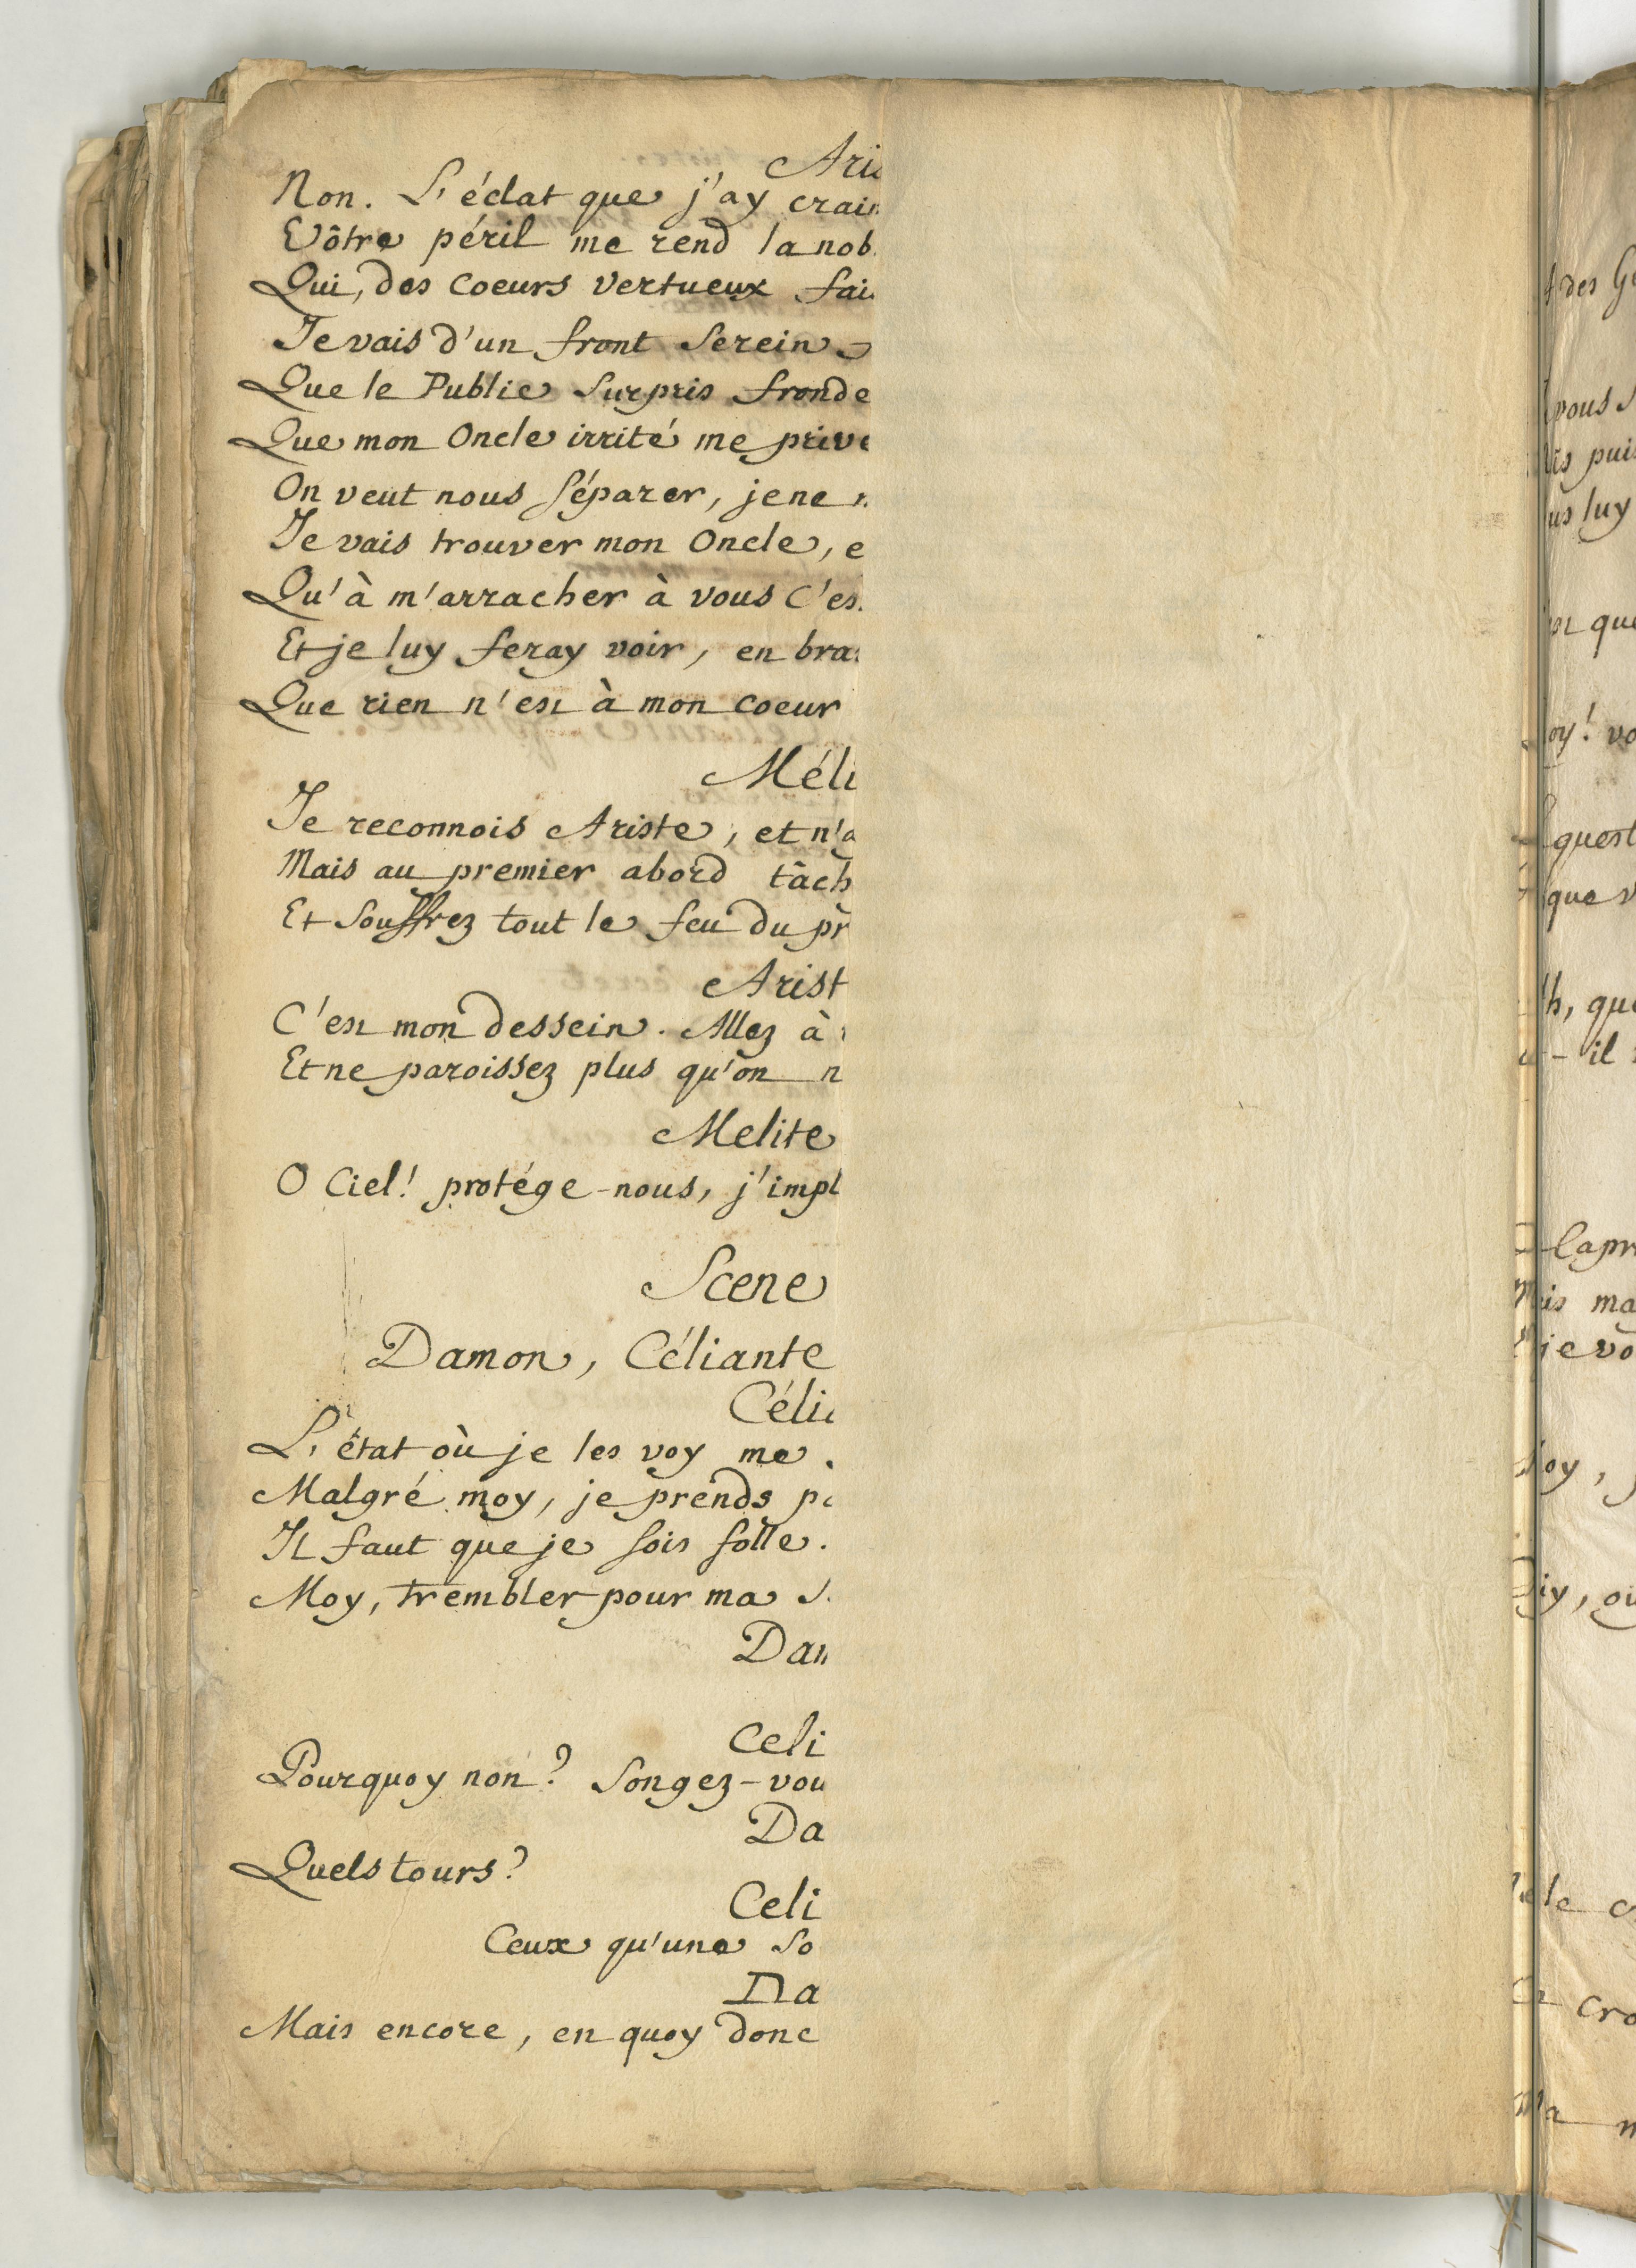 Aris
Non. L'éclat que j'ay crain
Vôtre péril me rend la nob
Qui, des Coeurs Vertueux fai
Je vais d'un front Serein
Que le Public Surpris fronde
Que mon Oncle irrité me prive
On veut nous Séparer, je ne
Je vais trouver mon Oncle, e
Qu'à m'arracher à vous C'es
Et je luy feray voir, en bra
Que rien n'est à mon Coeur
Méli
Je reconnois Ariste, et n'a
Mais au premier abord tâch
Et Souffrez tout le feu du pr
Arist
C'est mon dessein. Allez à
Et ne paroissez plus qu'on n
Melite
O Ciel! protége-nous, j'impl
Scene
Damon, Céliante
Célia
L'état où je les voy me
Malgré moy, je prends pa
Il faut que je sois folle.
Moy, trembler pour ma S
Dam
Celi
Pourquoy non? Songez-vou
Da
Quels tours?
Celi
Ceux qu'une So
Da
Mais encore, en quoy donc
des
vous
puis
luy
que
oy! vo
quest
que v
h, que
- il
Capr
is ma
je vo
oy,
le
cro